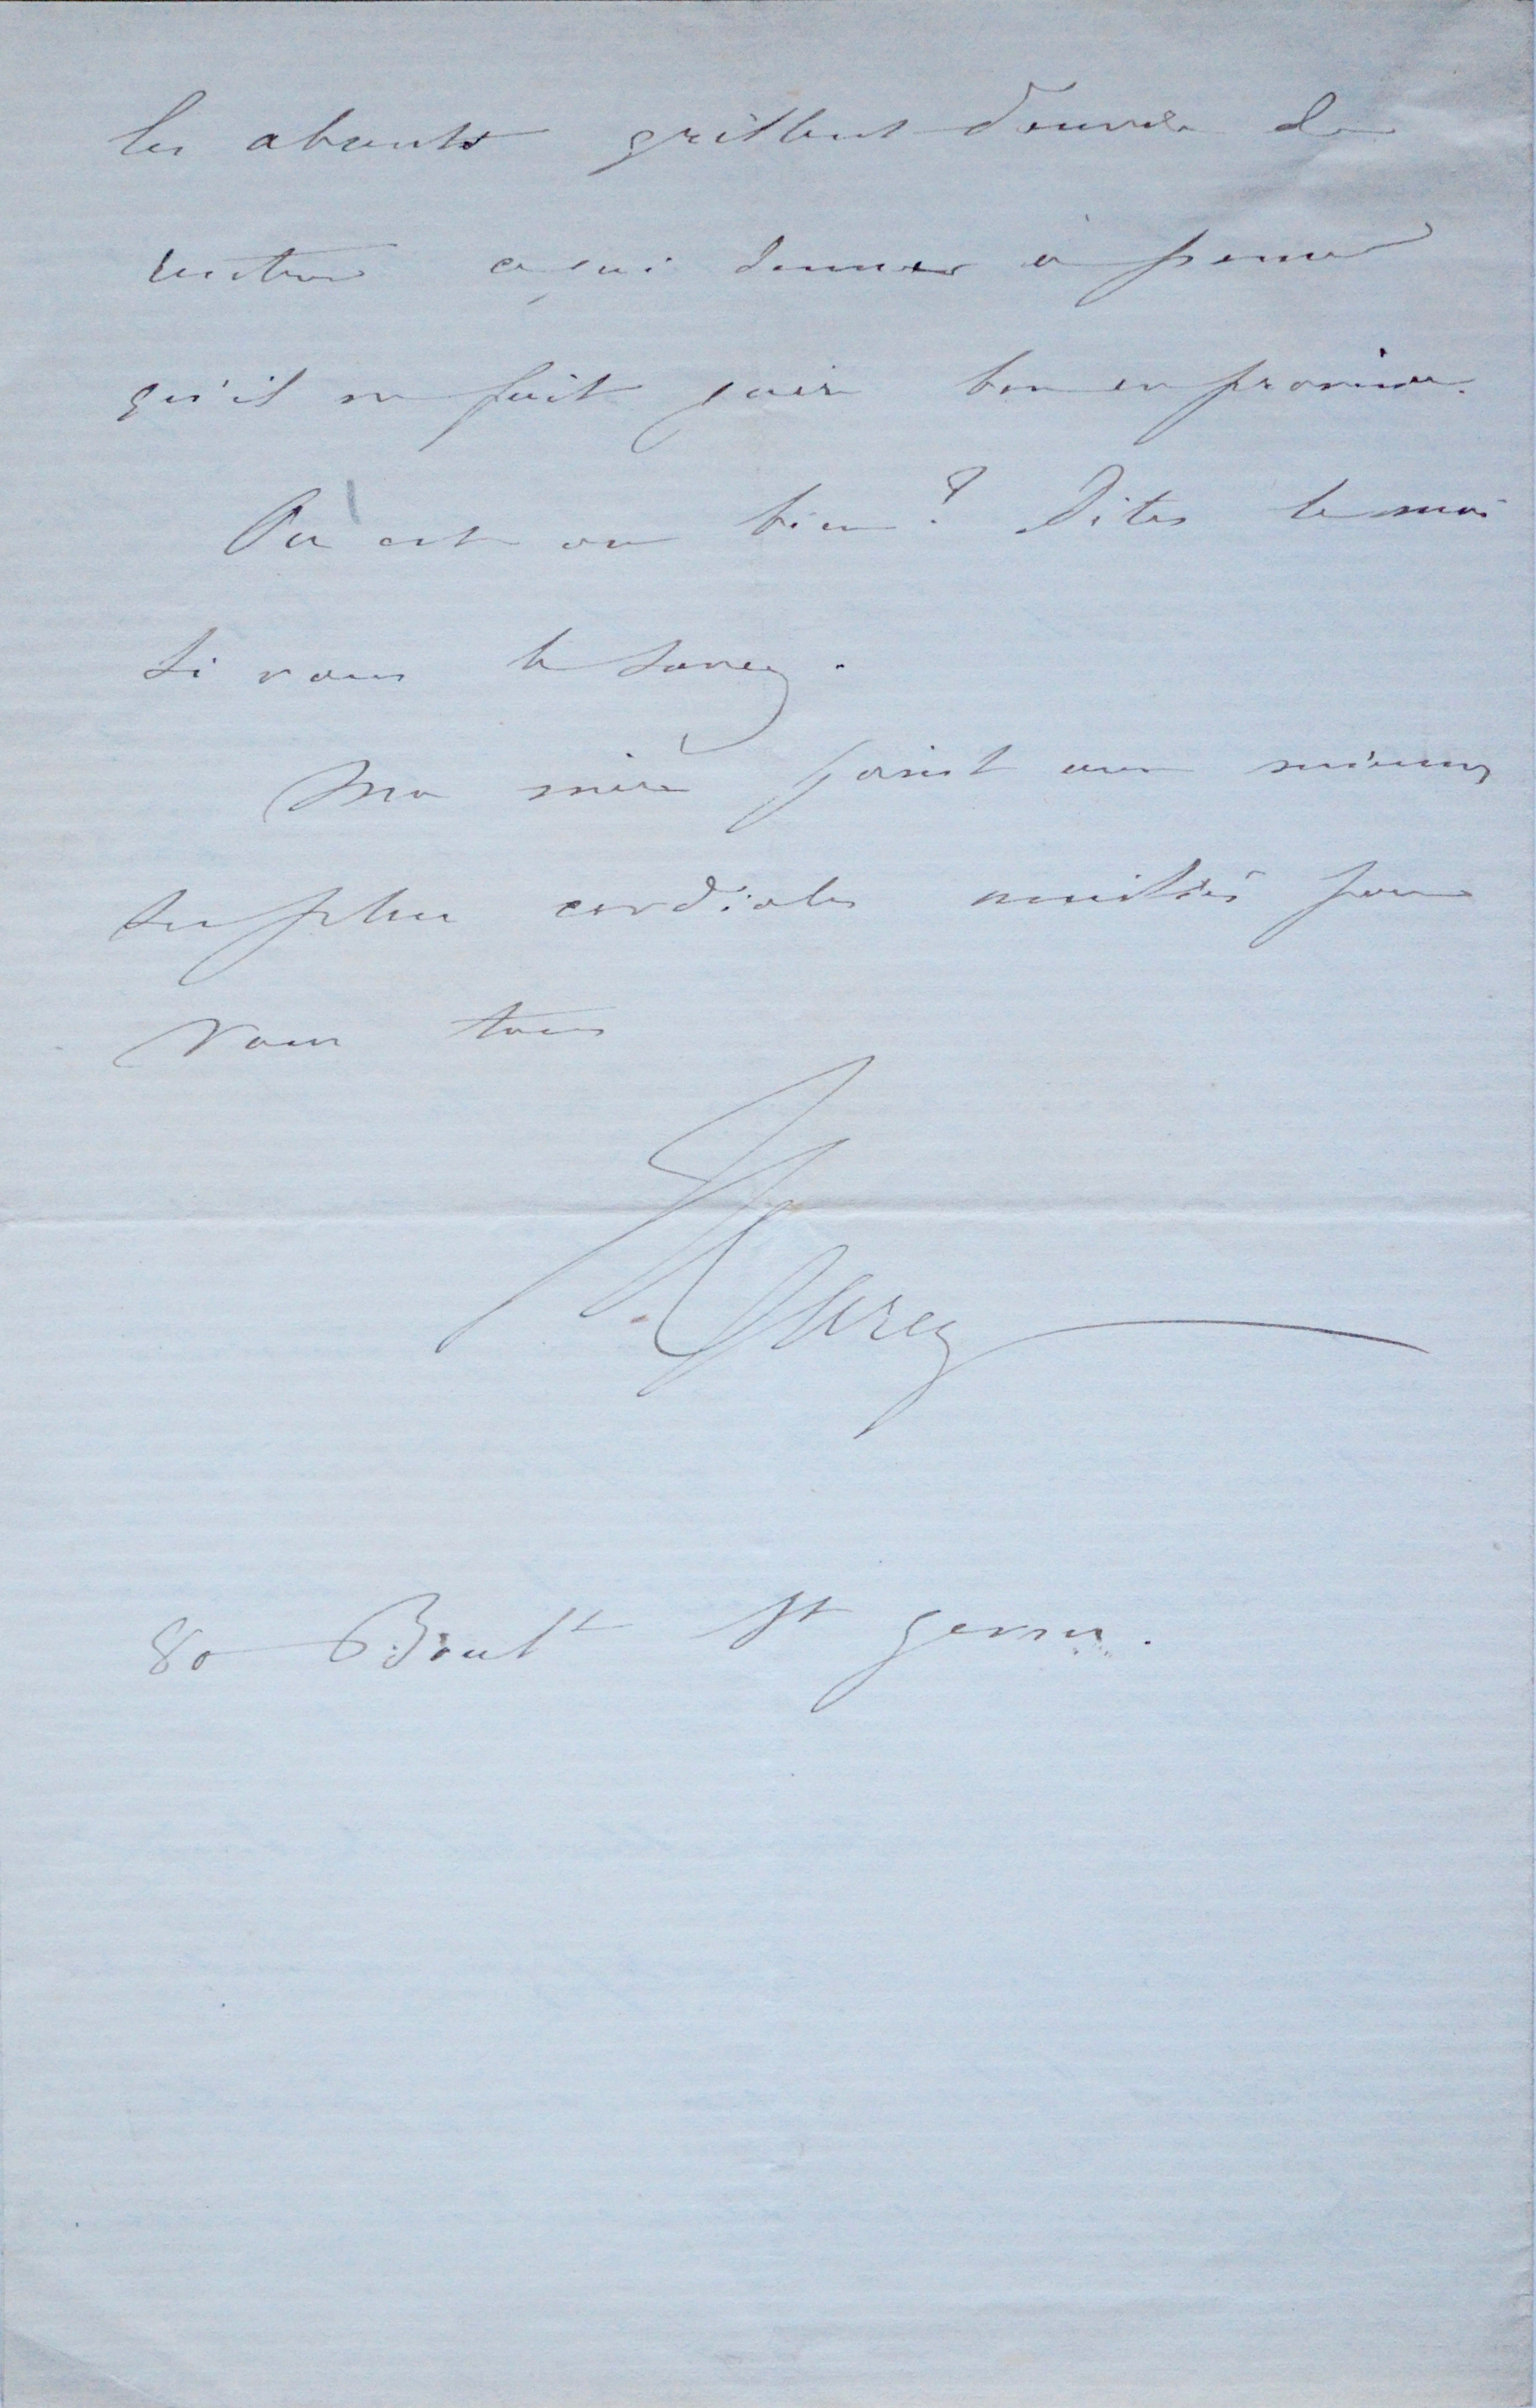 les absents grillent d'envie de
rentrer ce qui donne à penser
qu'il ne fait guère bon en province.
Où est on bien ? Dites le moi
si vous le savez.
Ma mère joint aux miennes
ses plus cordiales amitiés pour
vous tous
EMarey
80 Boult St germ.